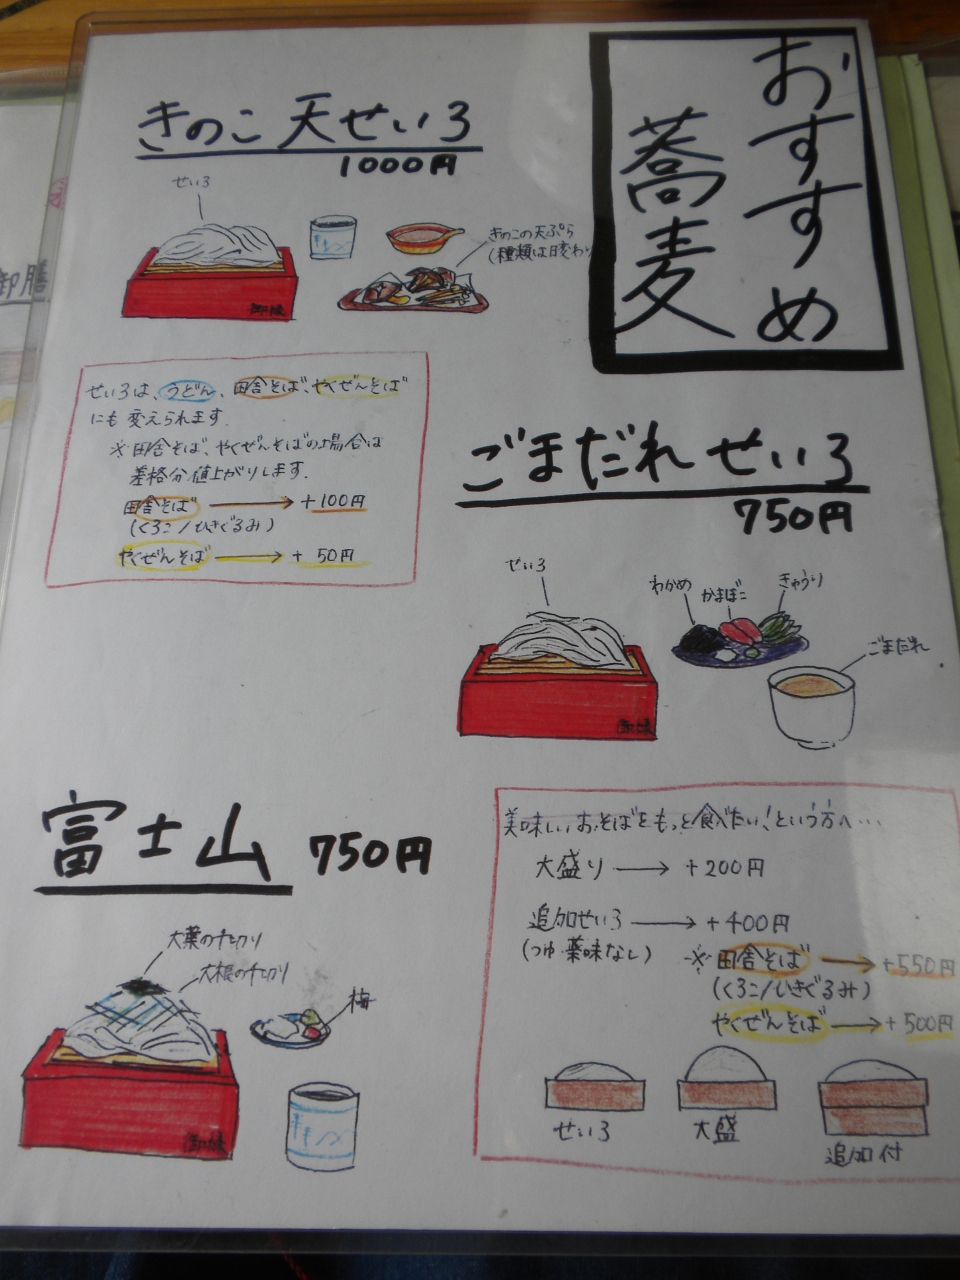 おすすめ
蕎麦
きのこ天せいろ
1000円
せいろ
きのこの天ぷら
(種類は日変わり
せいろは、うどん、田舎そば、やくぜんそば
にも変えられます。
※田舎そば、やくぜんそばの場合は
差格分値上がりします。
田舎そば → +100円
(くろこ/ひきぐるみ)
やくぜんそば → + 50円
ごまだれせいろ
750円
せいろ
わかめ
かまぼこ
きゅうり
ごまだれ
富士山 750円
大葉の千切り
大根の千切り
梅
美味しいおそばをもっと食べたい!という方へ…
大盛り → +200円
追加せいろ → +400円
(つゆ・薬味なし)
※田舎そば → +550円
(くろこ/ひきぐるみ)
やくぜんそば → +500円
せいろ
大盛
追加付
御膳